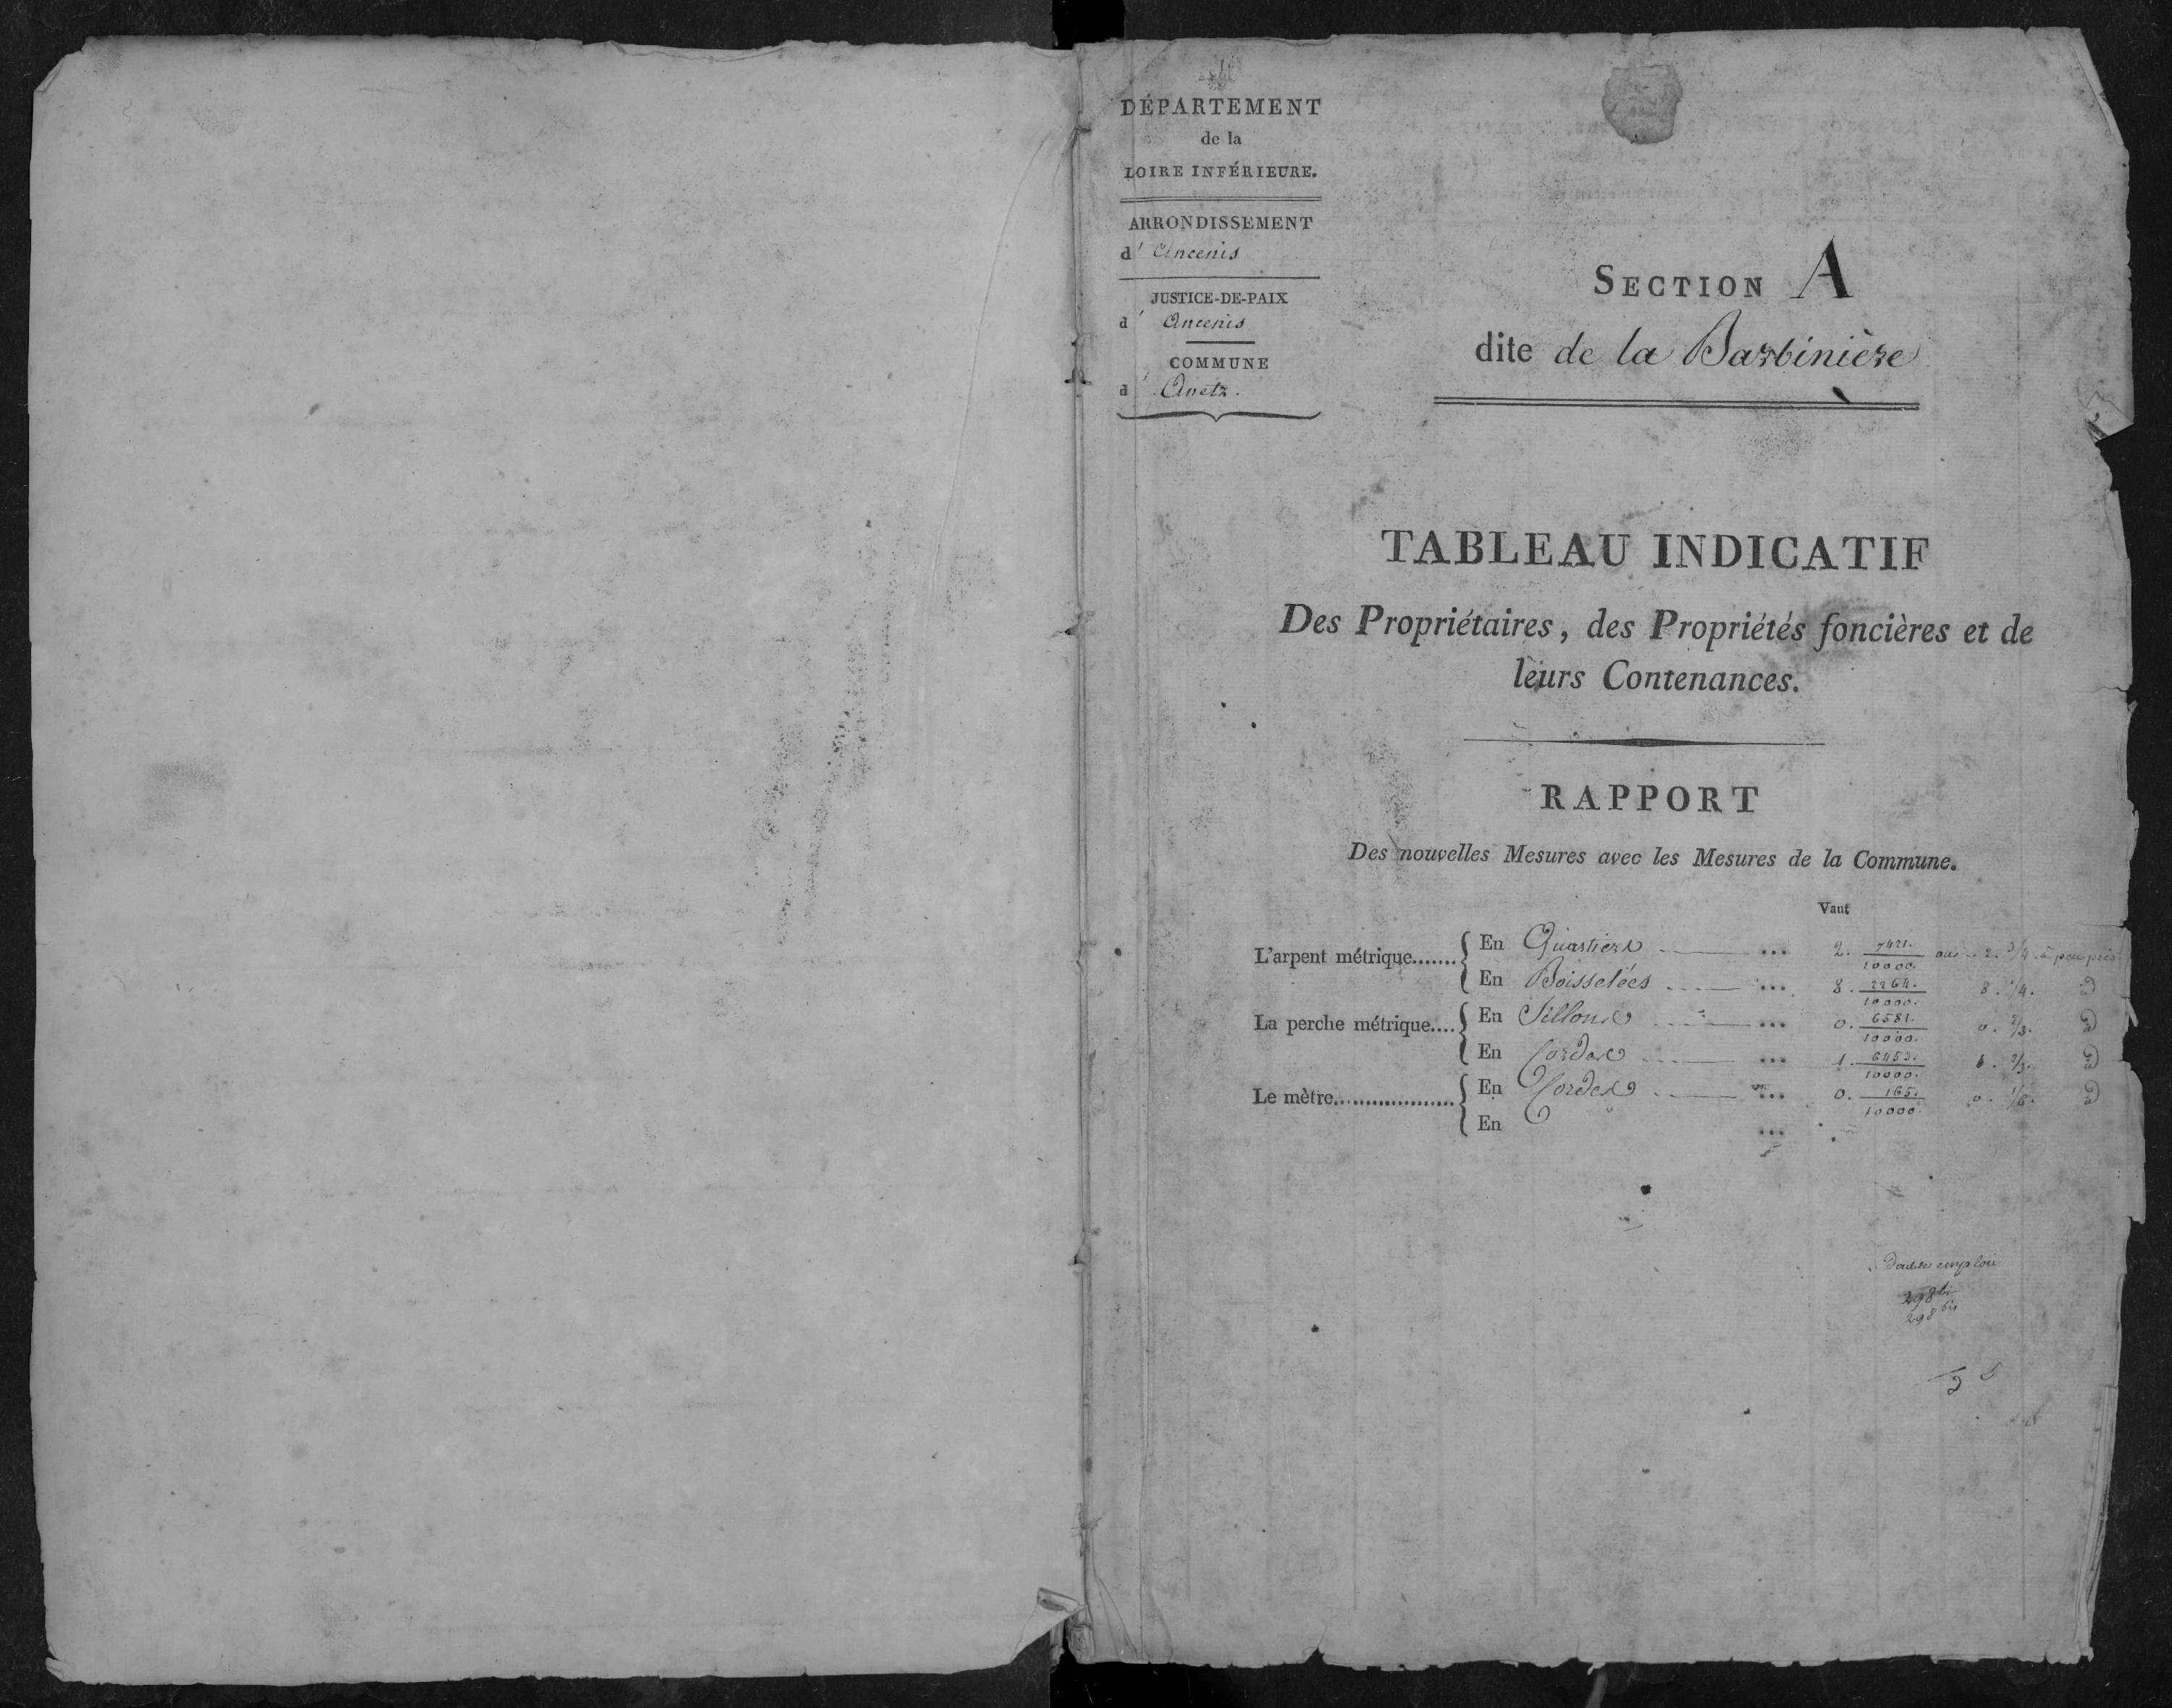 DÉPARTEMENT
de la
LOIRE INFÉRIEURE.
ARRONDISSEMENT
d' Ancenis
JUSTICE-DE-PAIX
d' Ancenis
COMMUNE
d' Anetz.
SECTION A
dite de la Barbinière
TABLEAU INDICATIF
Des Propriétaires, des Propriétés foncières et de
leurs Contenances.
RAPPORT
Des nouvelles Mesures avec les Mesures de la Commune.
Vaut
L'arpent métrique....... En Quartiers ... 2. 7421./10000. ou 2. 3/4 à peu près
En Boisselées ... 8. 2264./10000. 8. 1/4. d
La perche métrique.... En Sillons ... 0. 6581./10000. 0. 2/3. d
En Cordes ... 1. 6453./10000. 2/3. d
Le mètre................... En Cordes ... 0. 165./10000. 0. d
En ...
double emploi
298 bis
298 bis